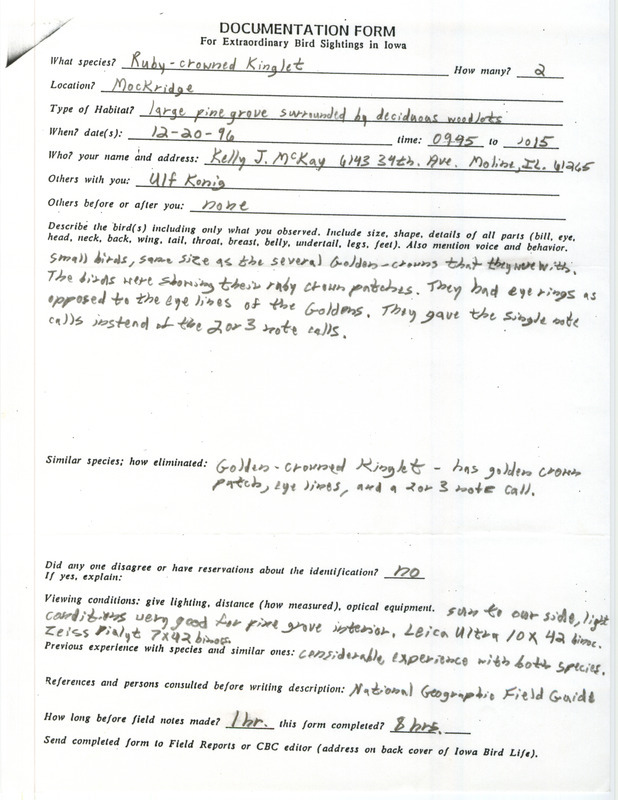 DOCUMENTATION FORM
For Extraordinary Bird Sightings in Iowa
What species? Ruby-crowned Kinglet How many? 2
Location? Mockridge
Type of Habitat? large pine grove surrounded by deciduous woodlots
When? date(s): 12-20-96 time: 0945 to 1015
Who? your name and address: Kelly J. McKay 6143 34th. Ave. Moline, IL. 61265
Others with you: Ulf Konig
Others before or after you: none
Describe the bird(s) including only what you observed. Include size, shape, details of all parts (bill, eye,
head, neck, back, wing, tail, throat, breast, belly, undertail, legs, feet). Also mention voice and behavior.
small birds, same size as the several Golden-crowns that they were with.
The birds were showing their ruby crown patches. They had eye rings as
opposed to the eye lines of the Goldens. They gave the single note
calls instead of the 2 or 3 note calls.
Similar species; how eliminated: Golden-crowned Kinglet - has golden crown
patch, eye lines, and a 2 or 3 note call.
Did any one disagree or have reservations about the identification? no
If yes, explain:
Viewing conditions: give lighting, distance (how measured), optical equipment. sun to our side, light
conditions very good for pine grove interior. Leica Ultra 10X 42 binoc.
Zeiss Dialyt 7x42 binoc.
Previous experience with species and similar ones: considerable experience with both species.
References and persons consulted before writing description: National Geographic Field Guide
How long before field notes made? 1 hr. this form completed? 8 hrs.
Send completed form to Field Reports or CBC editor (address on back cover of Iowa Bird Life).